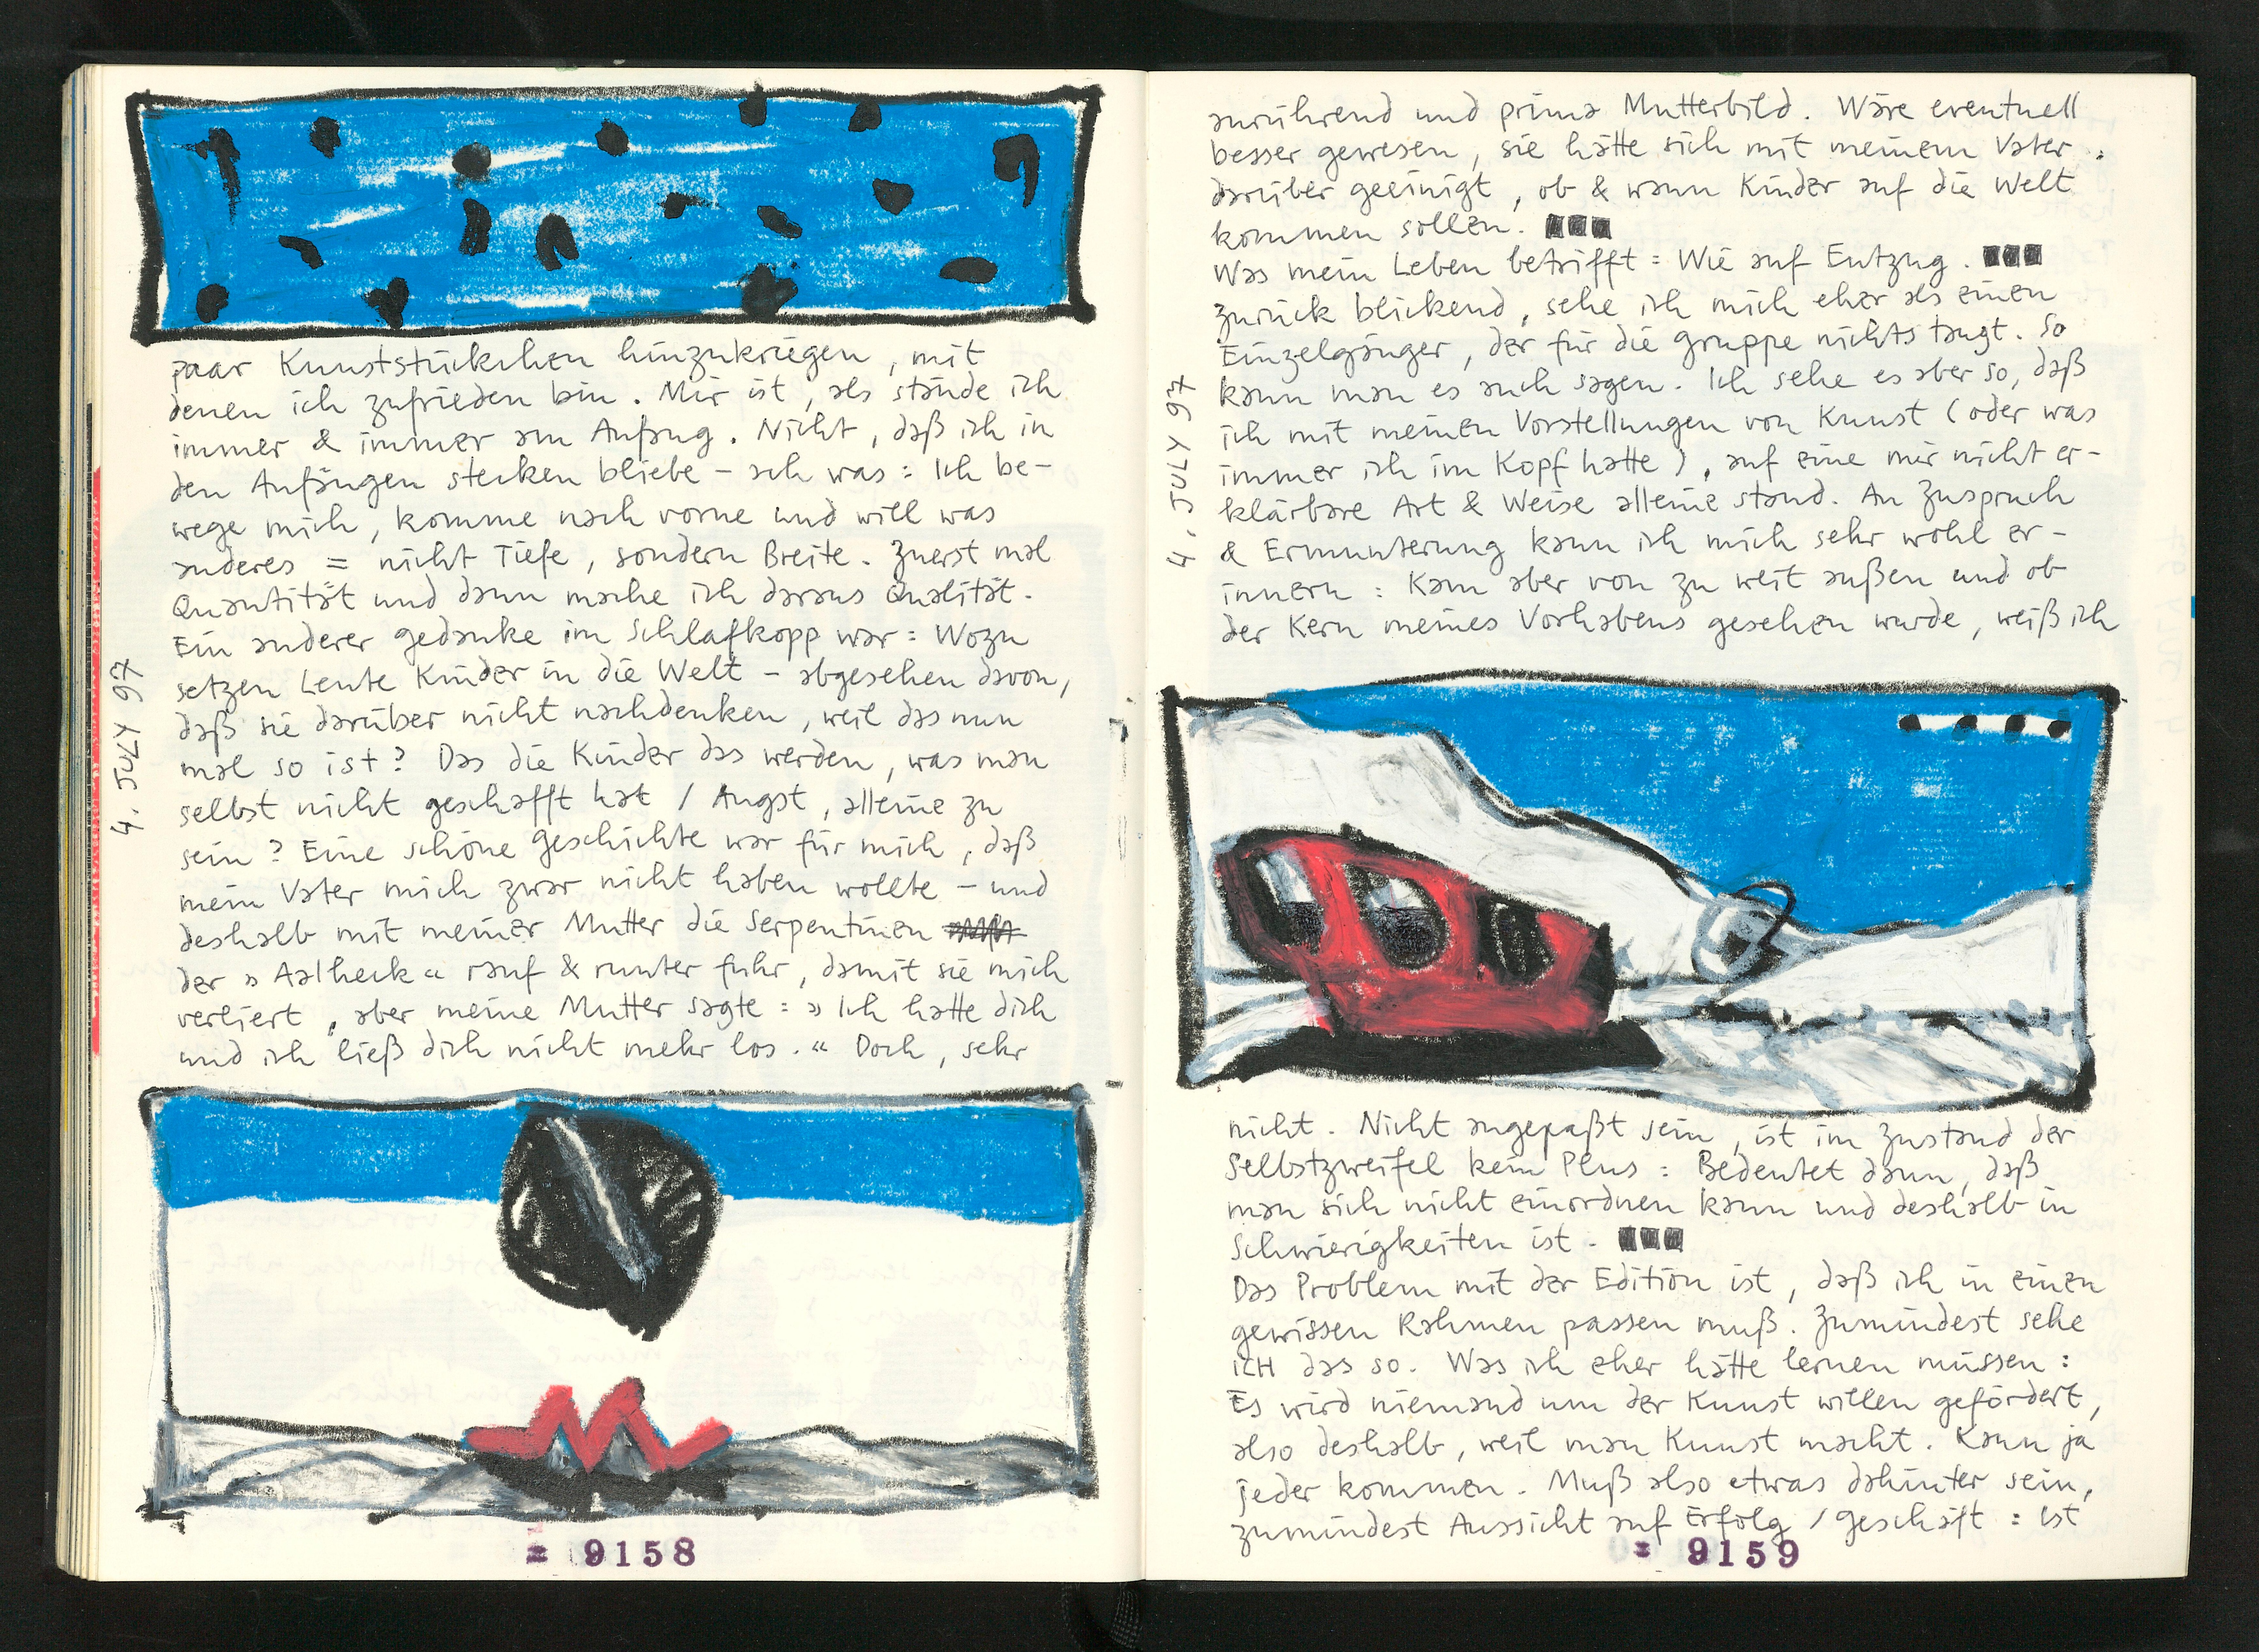 paar Kunststückchen hinzukriegen, mit
denen ich zufrieden bin. Mir ist, als stände ich
immer & immer am Anfang. Nicht, daß ich in
den Anfängen stecken bliebe – ach was: Ich be-
wege mich, komme nach vorne und will was
anderes = nicht Tiefe, sondern Breite. Zuerst mal
Quantität und dann mache ich daraus Qualität.
Ein anderer Gedanke im Schlafkopp war: Wozu
setzen Leute Kinder in die Welt – abgesehen davon,
daß sie darüber nicht nachdenken, weil das nun
mal so ist? Das die Kinder das werden, was man
selbst nicht geschafft hat / Angst, alleine zu
sein? Eine schöne Geschichte war für mich, daß
mein Vater mich zwar nicht haben wollte – und
deshalb mit meiner Mutter die Serpentinen
der »Aalheck« rauf & runter fuhr, damit sie mich
verliert, aber meine Mutter sagte: »Ich hatte dich
und ich ließ dich nicht mehr los.« Doch, sehr
4. JULY 97
= 9158
anrührend und prima Mutterbild. Wäre eventuell
besser gewesen, sie hätte sich mit meinem Vater
darüber geeinigt, ob & wann Kinder auf die Welt
kommen sollen.
Was mein Leben betrifft: Wie auf Entzug.
Zurück blickend, sehe ich mich eher als einen
Einzelgänger, der für die Gruppe nichts taugt. So
kann man es auch sagen. Ich sehe es aber so, daß
ich mit meinen Vorstellungen von Kunst (oder was
immer ich im Kopf hatte), auf eine mir nicht er-
klärbare Art & Weise alleine stand. An Zuspruch
& Ermunterung kann ich mich sehr wohl er-
innern: Kam aber von zu weit außen und ob
der Kern meines Vorhabens gesehen wurde, weiß ich
4. JULY 97
nicht. Nicht angepaßt sein, ist im Zustand der
Selbstzweifel kein Plus: Bedeutet dann, daß
man sich nicht einordnen kann und deshalb in
Schwierigkeiten ist.
Das Problem mit der Edition ist, daß ich in einen
gewissen Rahmen passen muß. Zumindest sehe
ICH das so. Was ich eher hätte lernen müssen:
Es wird niemand um der Kunst willen gefördert,
also deshalb, weil man Kunst macht. Kann ja
jeder kommen. Muß also etwas dahinter sein,
zumindest Aussicht auf Erfolg / Geschäft: Ist
= 9159